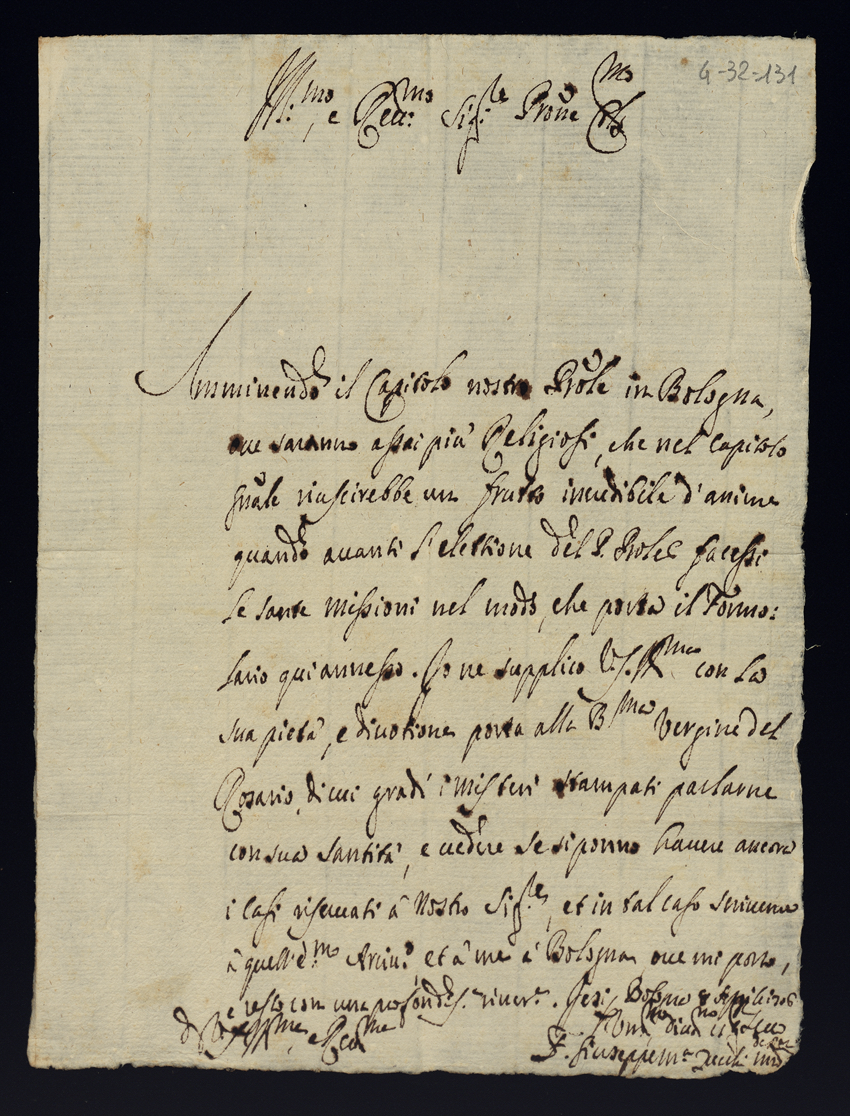 4-32-131
Ill:mo, e Reu:mo Sig:re Prone
Amminendo il Capitolo nostro Prole in Bologna,
oue saranno assai più Religiosi, che nel Capitolo
gnãle riuscirebbe un frutto incredibile d'anime
quando auanti l'elettione del P. Prole facessi
le sante missioni nel modo, che porta il Formo:
lario qui annesso. Io ne supplico V.S. Ill.ma con la
sua pietà, e diuotione porta alla B.ma Vergine del
Rosario, di cui gradí i misteri stampati parlarne
con sua santità, e uedere se si ponno hauere ancora
i casi riseruati à Nostro Sig.re, et in tal caso scriuerne
à quell'E.mo Arciu.o, et à me à Bologna oue mi porto,
e resto con una profond.s. riuer.a. Jesi
di V.S. Ill.ma, e Reu.ma
F. Giuseppe M.a